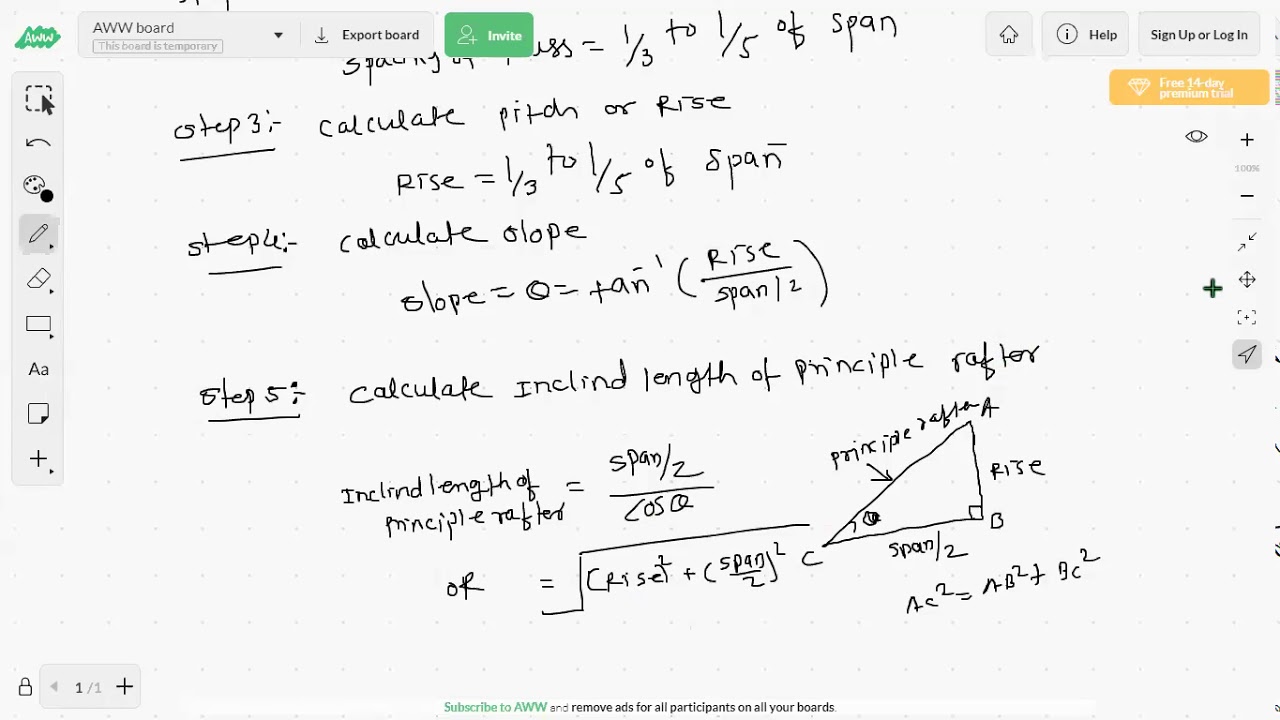 AWW board
This board is temporary
Export board
Invite
Help
Sign Up or Log In
Free 14-day premium trial
100%
Spacing of truss = 1/3 to 1/5 of span
Step 3:- calculate pitch or Rise
Rise = 1/3 to 1/5 of span
Step 4:- calculate slope
slope = θ = tan⁻¹ (Rise / span/2)
Step 5:- calculate Inclind length of principle rafter
Inclind length of principle rafter = span/2 / cosθ
OR = √(Rise)² + (span/2)²
principle rafter
A
Rise
θ
B
C
span/2
AC² = AB² + BC²
Aa
1 / 1
Subscribe to AWW and remove ads for all participants on all your boards.